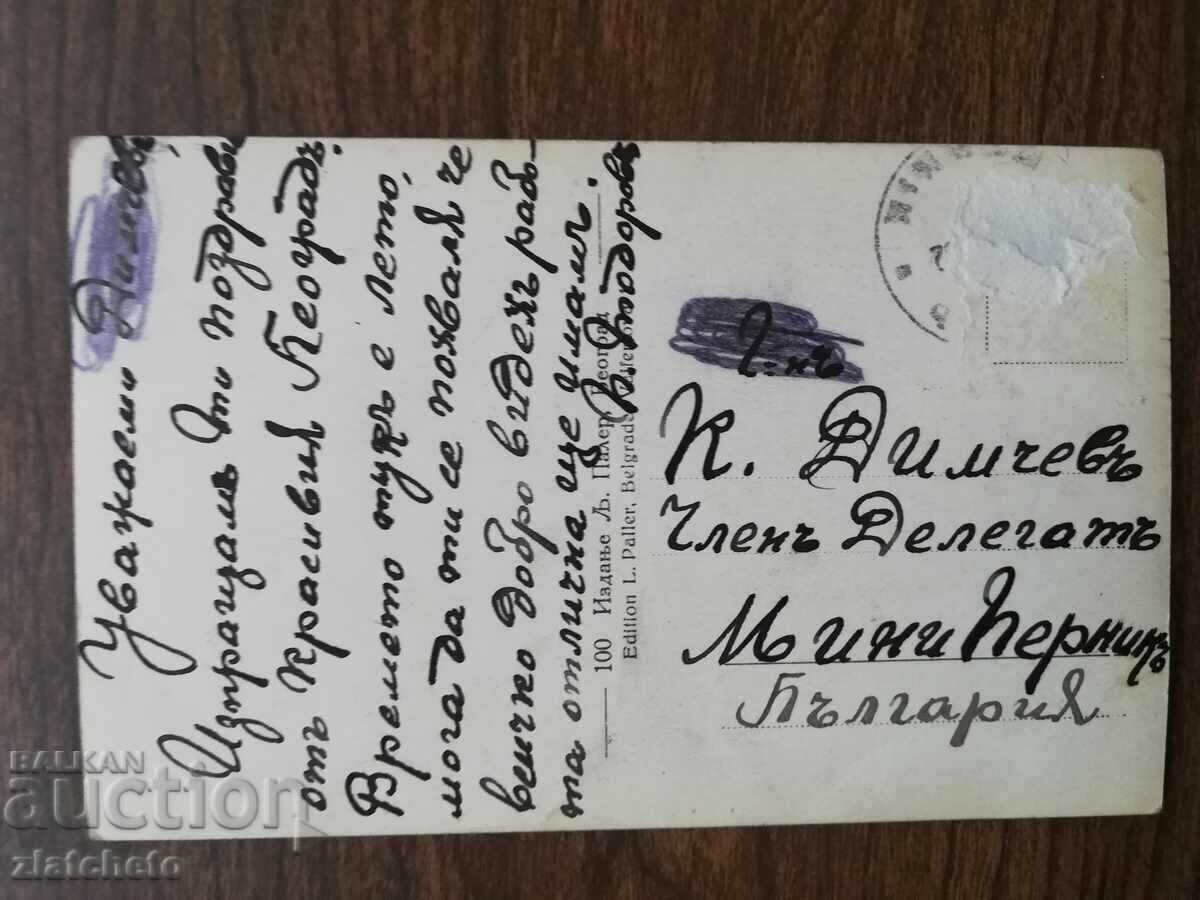 Уважаеми Димчевъ,
Изпращамъ ти поздрави
отъ красивия Београдъ.
Времето тукъ е лето,
мога да ти се похваля че
всичко добро видехъ рабо-
та отлична ще имамъ.
Тодоровъ
100 Издање Љ. Палер, Београд
Edition L. Paller, Belgrade
Г-нъ
К. Димчевъ
Членъ Делегатъ
Мини Перникъ
България
BALKAN
auction
zlatcheto